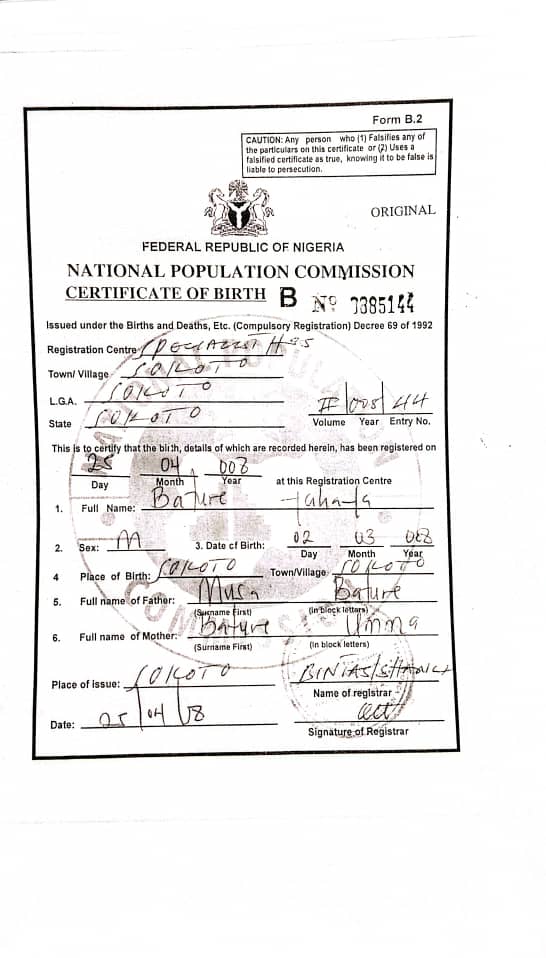 Form B.2
CAUTION: Any person who (1) Falsifies any of
the particulars on this certificate or (2) Uses a
falsified certificate as true, knowing it to be false is
liable to persecution.
ORIGINAL
FEDERAL REPUBLIC OF NIGERIA
NATIONAL POPULATION COMMISSION
CERTIFICATE OF BIRTH B No 7385144
Issued under the Births and Deaths, Etc. (Compulsory Registration) Decree 69 of 1992
Registration Centre SPECIALIST HOS
Town/ Village SOKOTO
L.G.A. SOKOTO
State SOKOTO
Volume Year Entry No. 44
This is to certify that the birth, details of which are recorded herein, has been registered on
25 04 008
Day Month Year at this Registration Centre
1. Full Name: Bature
2. Sex: M 3. Date of Birth: 02 03 008
Day Month Year
4 Place of Birth: SOKOTO Town/Village SOKOTO
5. Full name of Father: Musa Bature
(Surname First) (in block letters)
6. Full name of Mother: Bature Umma
(Surname First) (In block letters)
Place of issue: SOKOTO
Name of registrar
Date: 25/04/08
Signature of Registrar